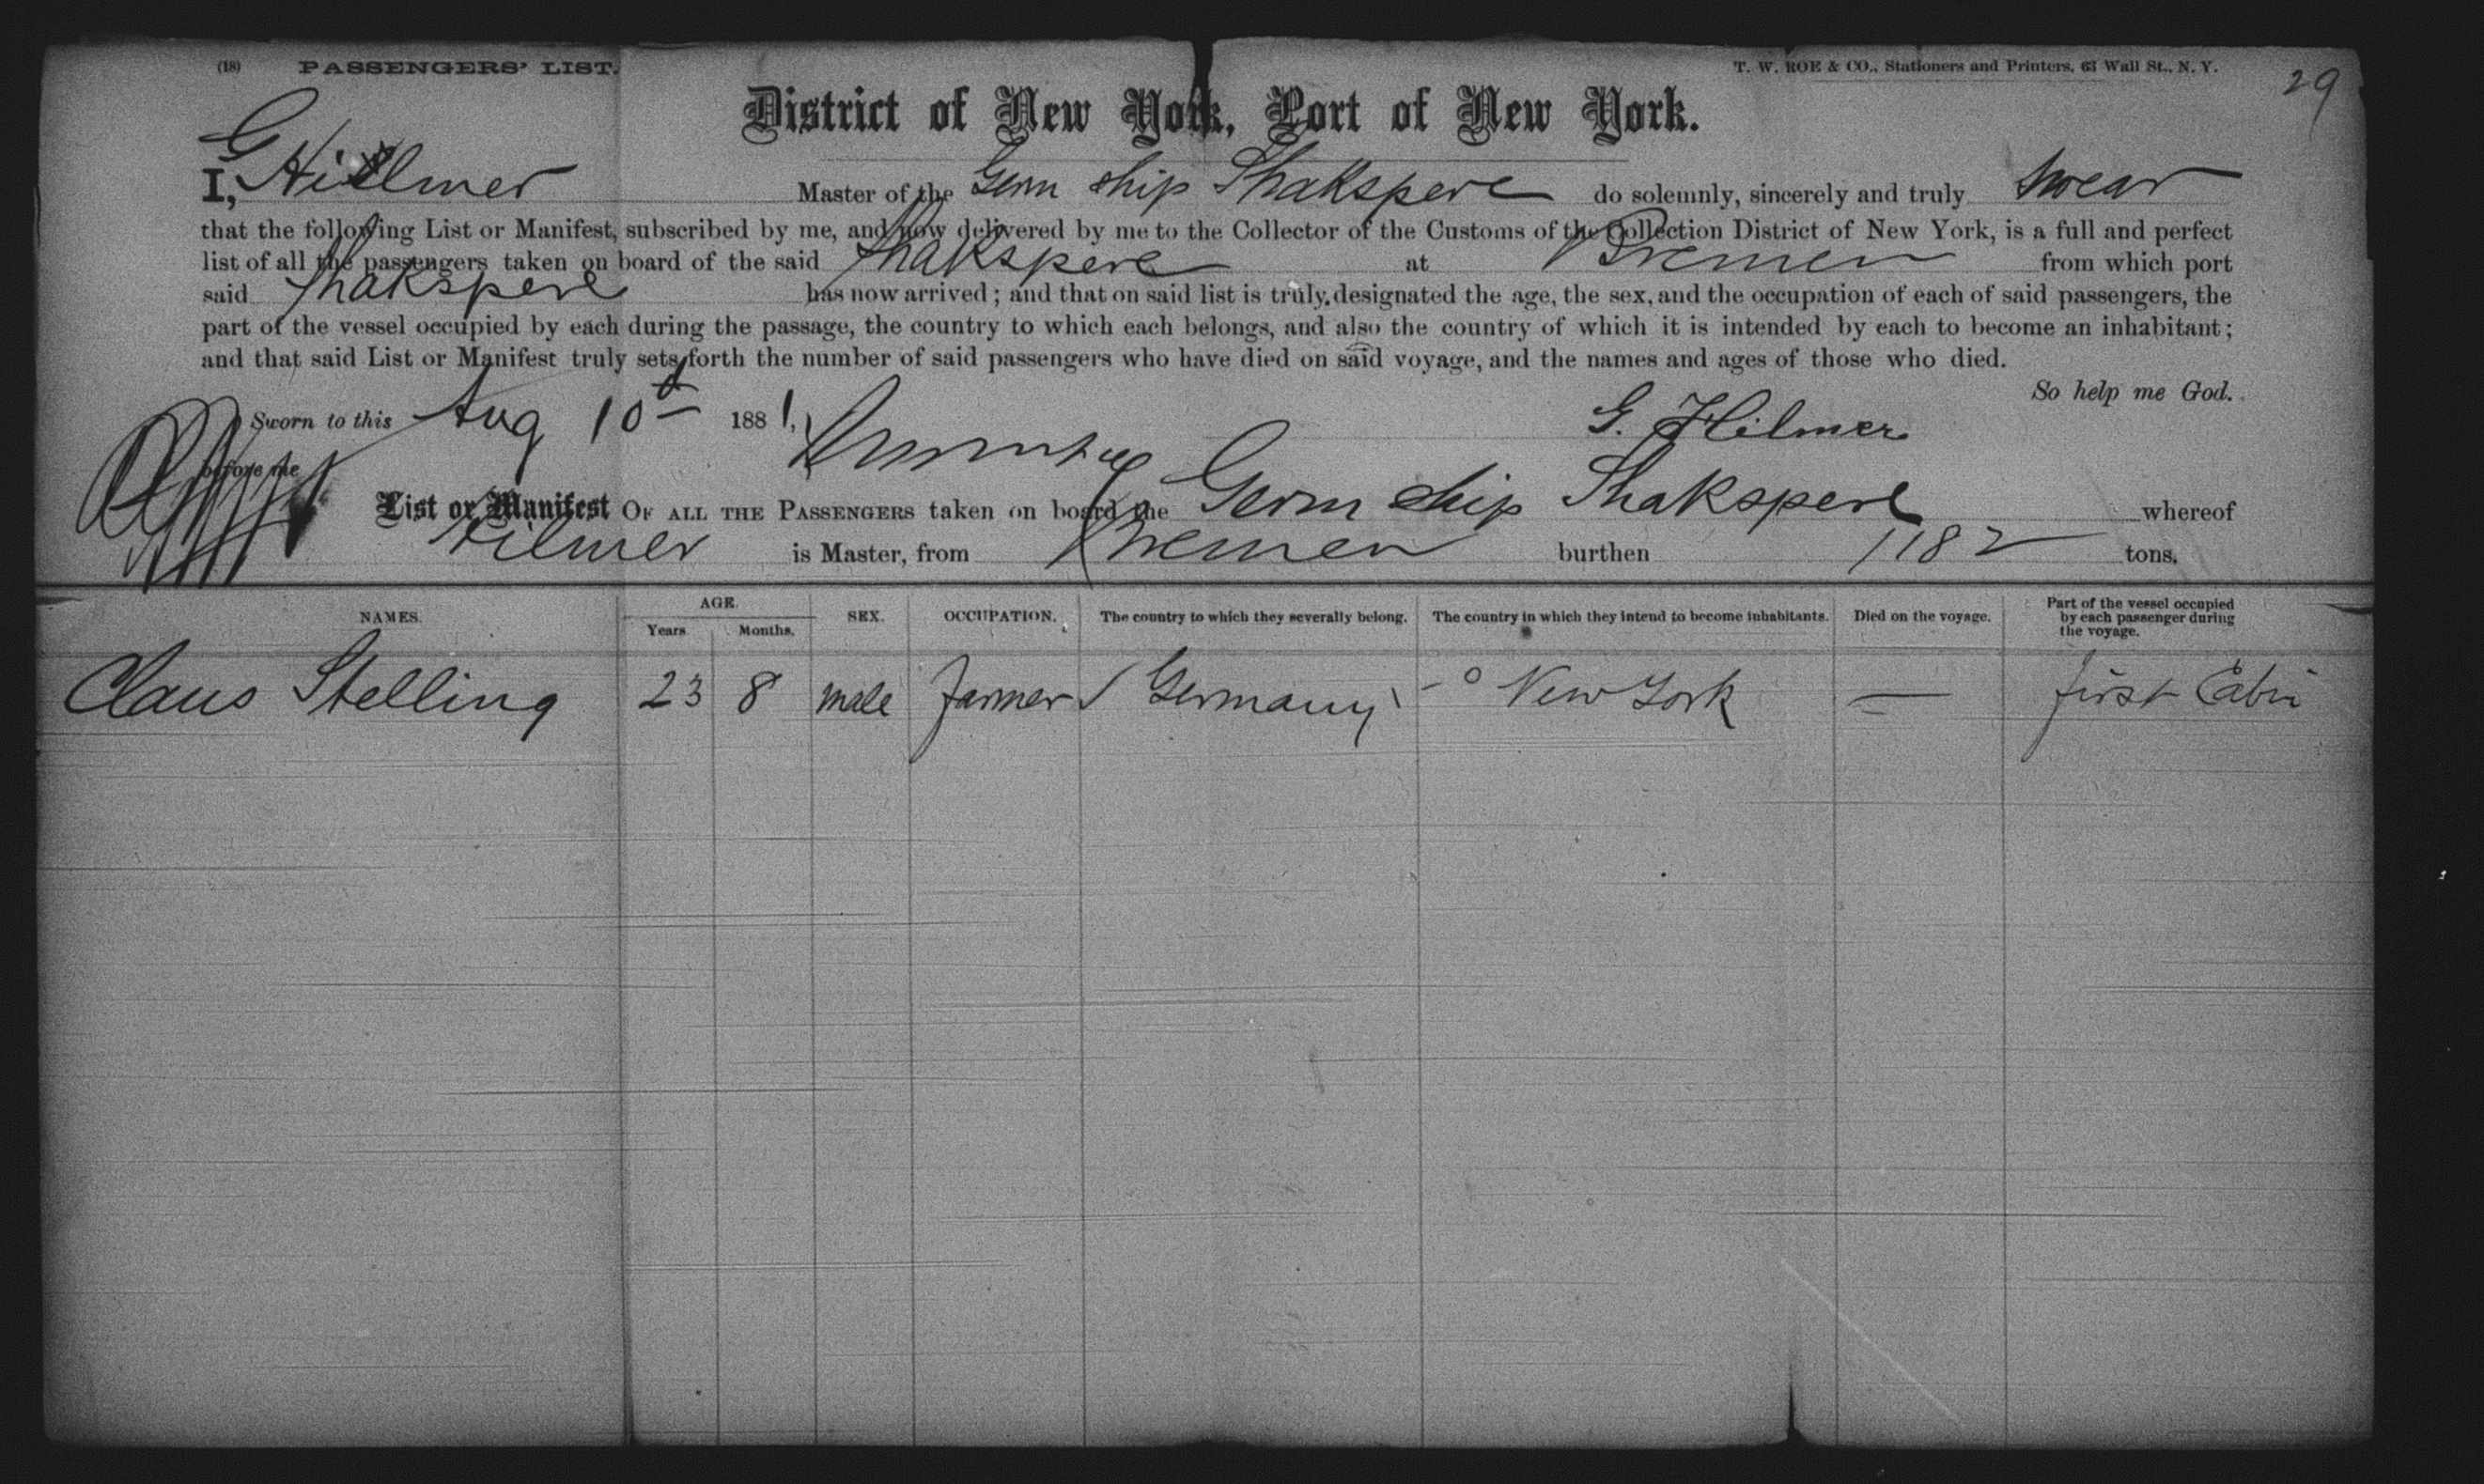 (18) PASSENGERS' LIST. T. W. ROE & CO., Stationers and Printers, 63 Wall St., N. Y. 29
District of New York, Port of New York.
I, G Hillmer Master of the Germ ship Shakspere do solemnly, sincerely and truly swear
that the following List or Manifest, subscribed by me, and now delivered by me to the Collector of the Customs of the Collection District of New York, is a full and perfect
list of all the passengers taken on board of the said Shakspere at Bremen from which port
said Shakspere has now arrived; and that on said list is truly designated the age, the sex, and the occupation of each of said passengers, the
part of the vessel occupied by each during the passage, the country to which each belongs, and also the country of which it is intended by each to become an inhabitant;
and that said List or Manifest truly sets forth the number of said passengers who have died on said voyage, and the names and ages of those who died.
So help me God.
Sworn to this Aug 10th 1881, G. Hilmer
before me
List or Manifest OF ALL THE PASSENGERS taken on board the Germ ship Shakspere whereof
Hilmer is Master, from Bremen burthen 1182 tons.
NAMES. AGE. Years Months. SEX. OCCUPATION. The country to which they severally belong. The country in which they intend to become inhabitants. Died on the voyage. Part of the vessel occupied by each passenger during the voyage.
Claus Stelling 23 8 male farmer Germany New York — first Cabin